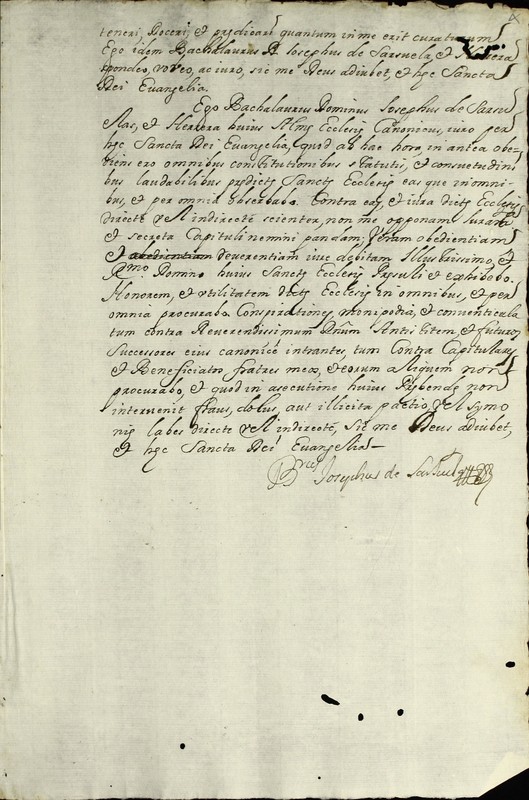 teneri, Doceri, et prędicari quantum in me erit curaturum
Ego idem Bachalaurus D Iosephus de Sarsuela, et Herrera
spondeo, voveo, ac iuro, sic me Deus adiubet, et hęc Sancta
Dei Euangelia.
Ego Bachalaurius Dominus Iosephus de Sarsu
elas, et Herrera huius Almę Ecclesię Canonicus, iuro per
hęc Sancta Dei Euangelia, quod ab hac hora, in antea obe-
diens ero omnibus constitutionibus statutis, et consuetudini
bus laudabilibus prędictę Sanctę Ecclesię eas que in omni-
bus, et per omnia observabo. Contra eas, et iura dictę Ecclesię
directè vel indirectè scienter, non me opponam
et secreta Capituli nemini pandam; Veram obedientiam
et obedientiam Reverentiam iure debitam Illustrissimo, et
R.mo Domino huius Sanctę Ecclesię Pręsuli et exhibebo.
Honorem, et vtilitatem dictę Ecclesię in omnibus, et per
omnia procurabo Conspirationes, monipodia, et conventicula
tum contra Reverendissimum Dnūm Antistitem, et futuros
Successores eius canonicè intrantes, tum Contra Capitulares
et Beneficiatos fratres meos, et eorum aliquem non
procurabo, et quod in asecutione huius Prębendę non
intervenit fraus, dolus, aut illicita pactio, vel symo
nię labes directe vel indirectè, sic me Deus adiubet,
et hęc Sancta Dei Euangelia
Iosephus de